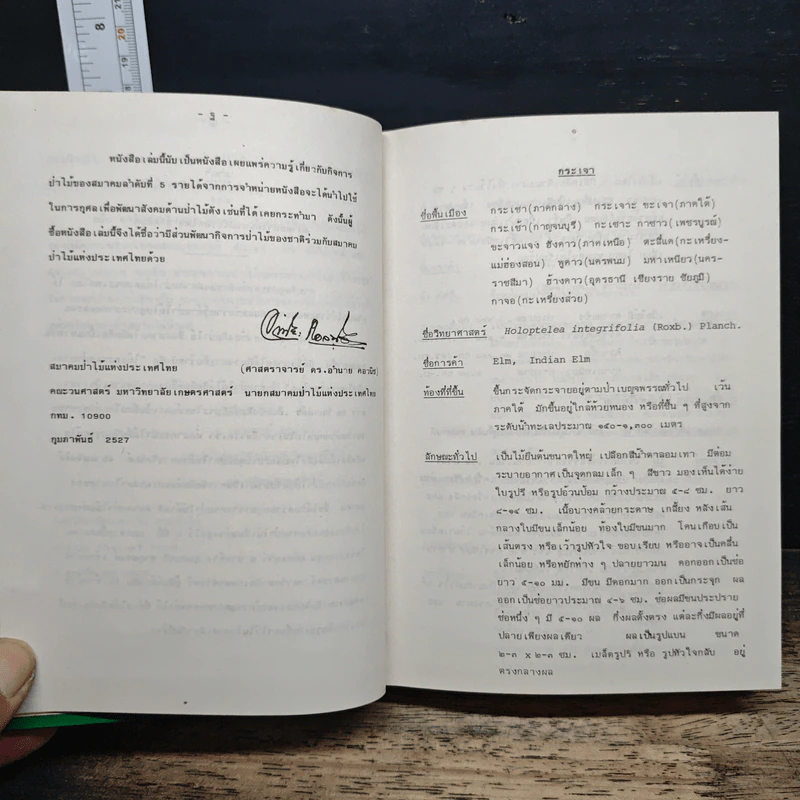 - ฐ -
หนังสือเล่มนี้นับเป็นหนังสือเผยแพร่ความรู้เกี่ยวกับกิจการ
ป่าไม้ของสมาคมลำดับที่ 5 รายได้จากการจำหน่ายหนังสือจะได้นำไปใช้
ในการกุศลเพื่อพัฒนาสังคมด้านป่าไม้ดังเช่นที่ได้เคยกระทำมา ดังนั้นผู้
ซื้อหนังสือเล่มนี้จึงได้ชื่อว่ามีส่วนพัฒนากิจการป่าไม้ของชาติร่วมกับสมาคม
ป่าไม้แห่งประเทศไทยด้วย
สมาคมป่าไม้แห่งประเทศไทย (ศาสตราจารย์ ดร.อำนาย คอวนิช)
คณะวนศาสตร์ มหาวิทยาลัยเกษตรศาสตร์ นายกสมาคมป่าไม้แห่งประเทศไทย
กทม. 10900
กุมภาพันธ์ 2527
๑
กระเจา
ชื่อพื้นเมือง กระเชา(ภาคกลาง) กระเจาะ ขะเจา(ภาคใต้)
กระเช้า(กาญจนบุรี) กะเซาะ กาซาว(เพชรบูรณ์)
ขะจาวแจง ฮังคาว(ภาคเหนือ) ตะสี่แค(กะเหรี่ยง-
แม่ฮ่องสอน) พูคาว(นครพนม) มหาเหนียว(นคร-
ราชสีมา) ฮ้างคาว(อุดรธานี เชียงราย ชัยภูมิ)
กาจอ(กะเหรี่ยงส่วย)
ชื่อวิทยาศาสตร์ Holoptelea integrifolia (Roxb.) Planch.
ชื่อการค้า Elm, Indian Elm
ท้องที่ที่ขึ้น ขึ้นกระจัดกระจายอยู่ตามป่าเบญจพรรณทั่วไป เว้น
ภาคใต้ มักขึ้นอยู่ใกล้ห้วยหนอง หรือที่ชื้น ๆ ที่สูงจาก
ระดับน้ำทะเลประมาณ ๑๕๐-๑,๓๐๐ เมตร
ลักษณะทั่วไป เป็นไม้ยืนต้นขนาดใหญ่ เปลือกสีน้ำตาลอมเทา มีต่อม
ระบายอากาศเป็นจุดกลมเล็ก ๆ สีขาว มองเห็นได้ง่าย
ใบรูปรี หรือรูปอ้วนป้อม กว้างประมาณ ๕-๘ ซม. ยาว
๘-๑๔ ซม. เนื้อบางคล้ายกระดาษ เกลี้ยง หลังเส้น
กลางใบมีขนเล็กน้อย ท้องใบมีขนมาก โคนเกือบเป็น
เส้นตรง หรือเว้ารูปหัวใจ ขอบเรียบ หรืออาจเป็นคลื่น
เล็กน้อย หรือหยักห่าง ๆ ปลายยาวมน ดอกออกเป็นช่อ
ยาว ๕-๑๐ มม. มีขน มีดอกมาก ออกเป็นกระจุก ผล
ออกเป็นช่อยาวประมาณ ๔-๖ ซม. ช่อผลมีขนประปราย
ช่อหนึ่ง ๆ มี ๕-๑๐ ผล กิ่งผลตั้งตรง แต่ละกิ่งมีผลอยู่ที่
ปลายเพียงผลเดียว ผลเป็นรูปแบน ขนาด
๒-๓ x ๒-๓ ซม. เมล็ดรูปรี หรือ รูปหัวใจกลับ อยู่
ตรงกลางผล